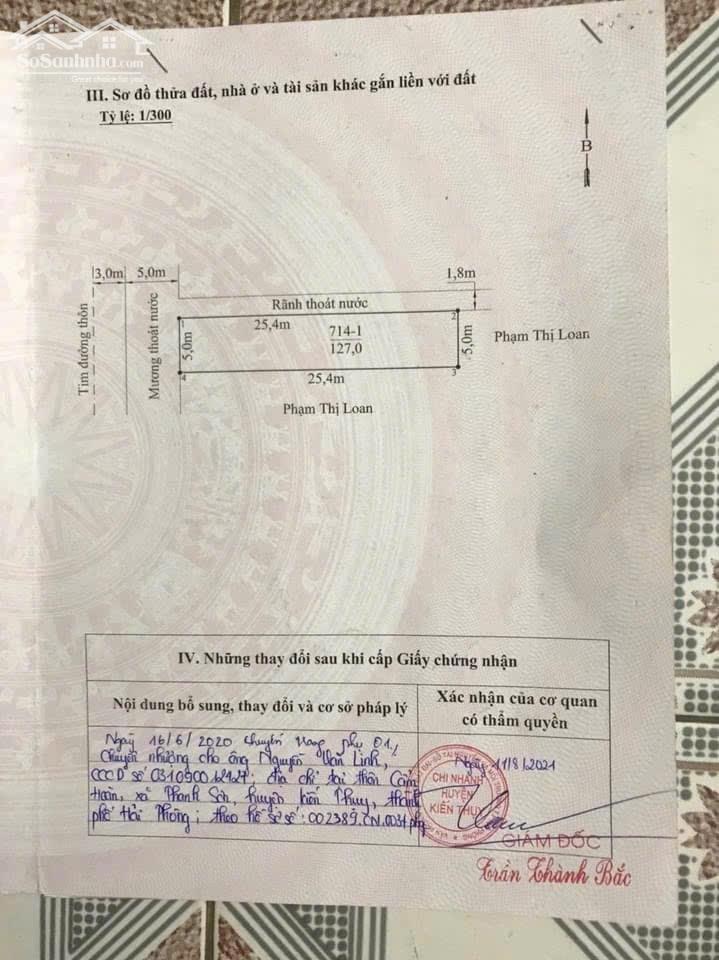 SoSanhnha.com
Great choice for you
III. Sơ đồ thửa đất, nhà ở và tài sản khác gắn liền với đất
Tỷ lệ: 1/300
B
3,0m 5,0m
1,8m
Tim đường thôn
Mương thoát nước
Rãnh thoát nước
1
2
25,4m
714-1
127,0
5,0m
5,0m
Phạm Thị Loan
4
3
25,4m
Phạm Thị Loan
IV. Những thay đổi sau khi cấp Giấy chứng nhận
Nội dung bổ sung, thay đổi và cơ sở pháp lý
Xác nhận của cơ quan
có thẩm quyền
Ngày 16/6/2020 chuyển trang phụ 01,
Chuyển nhượng cho ông Nguyễn Văn Linh,
CCCD số địa chỉ tại thôn Cẩm
Hoàn, xã Thanh Sơn, huyện Kiến Thụy, thành
phố Hải Phòng; theo hồ sơ số: 002389.CN.003
Ngày 11/8/2021
CHI NHÁNH
HUYỆN
KIẾN THỤY
GIÁM ĐỐC
Trần Thành Bắc